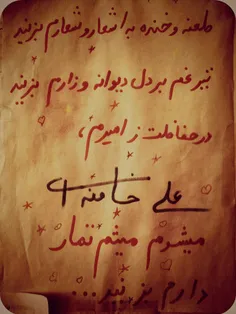 طعنه و خنده به اشعار و شعارم بزنید
تبر غم بر دل دیوانه و زارم بزنید
در حفاظت ز امیرم،
علی خامنه ای
میشوم میثم تمار
دارم بزنید...